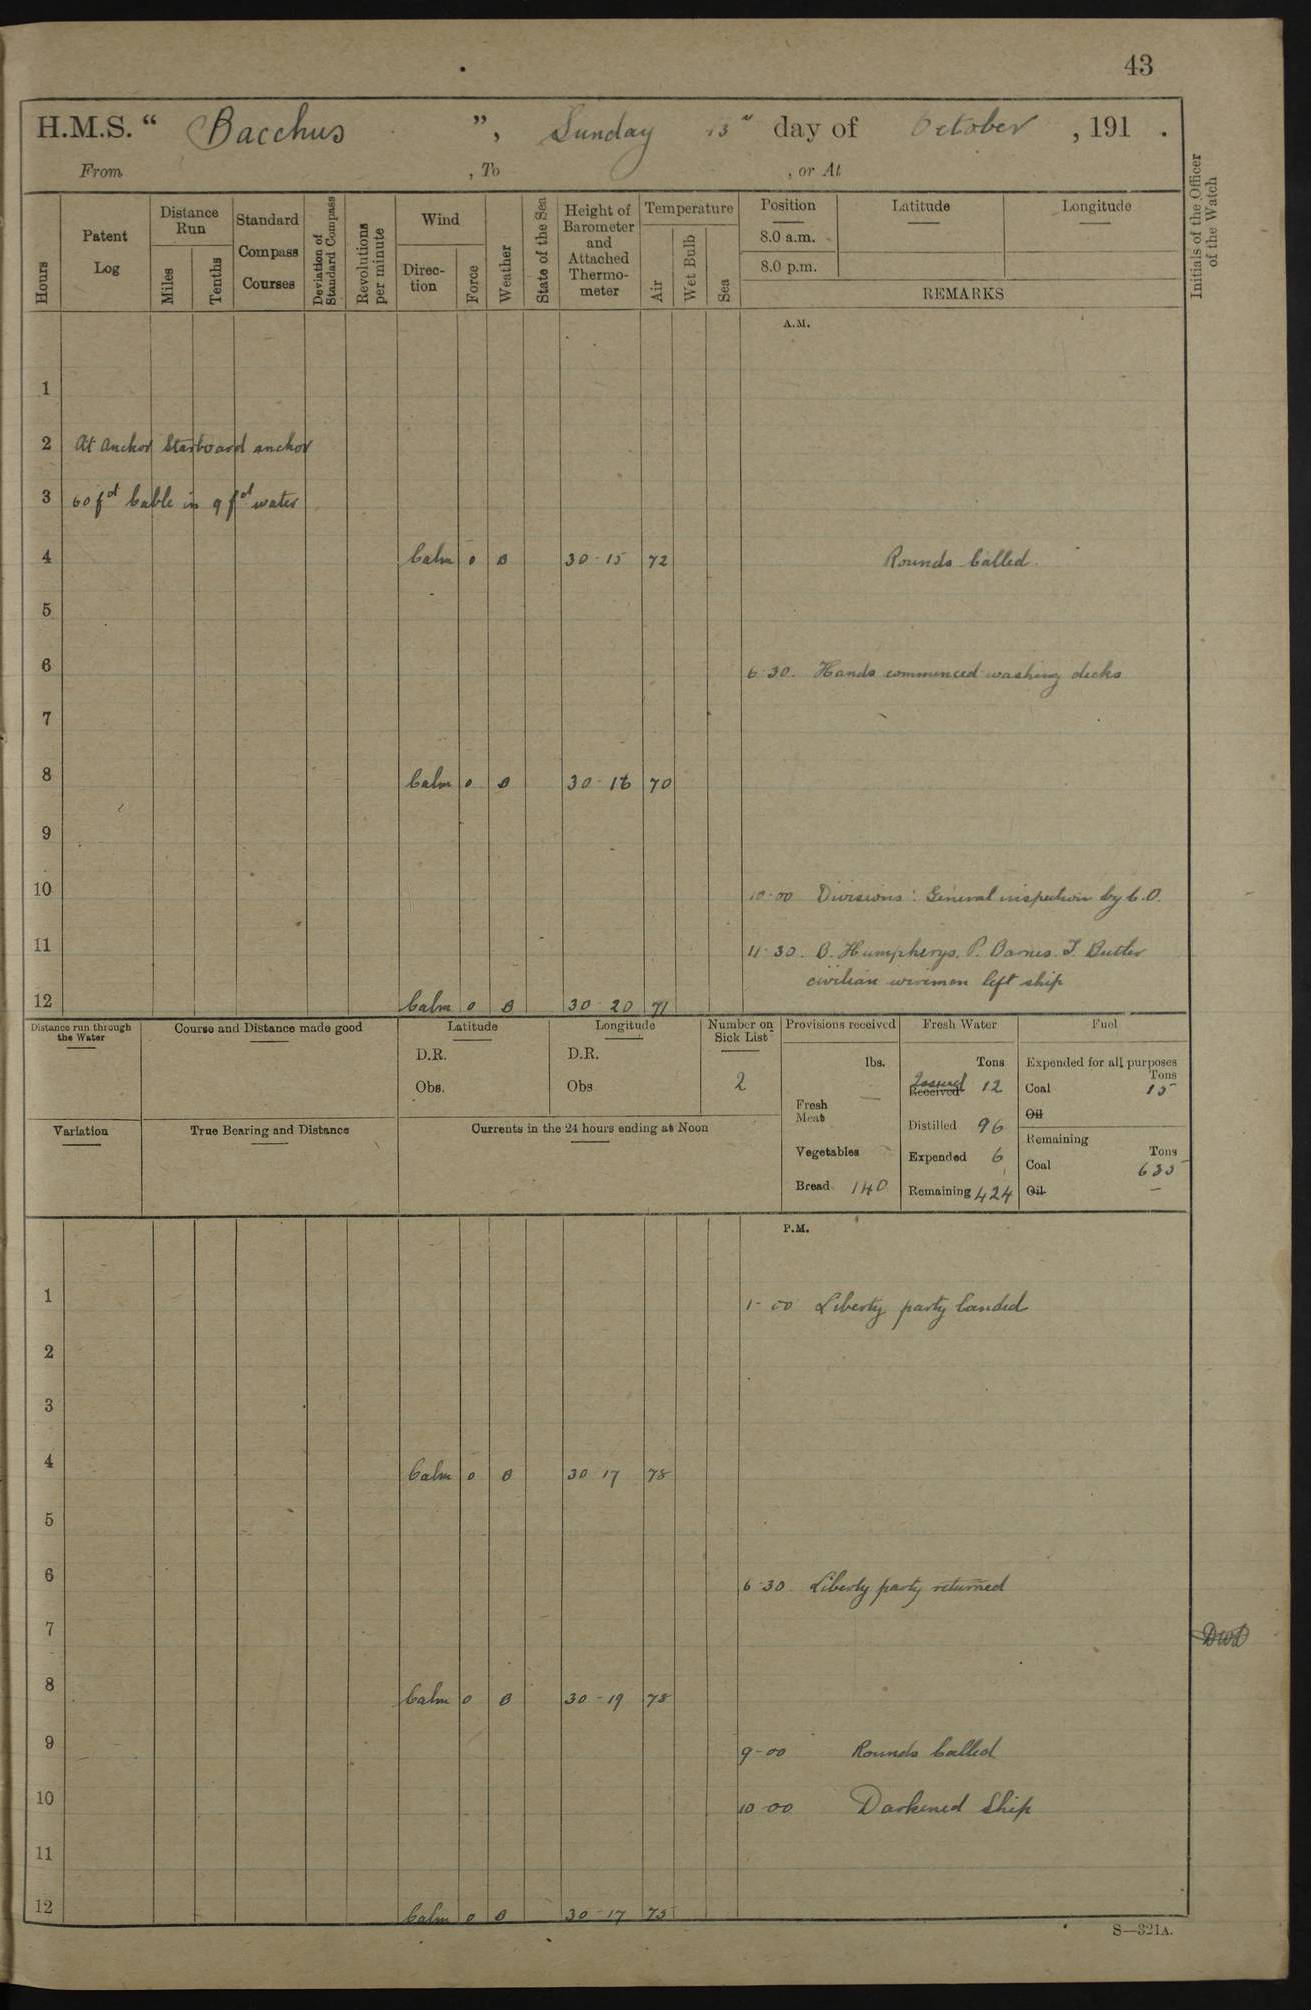 43
H.M.S. “ Bacchus ”, Sunday 13th day of October , 191 .
From , To , or At
Hours
Patent Log
Distance Run
Miles
Tenths
Standard Compass Courses
Deviation of Standard Compass
Revolutions per minute
Wind
Direction
Force
Weather
State of the Sea
Height of Barometer and Attached Thermometer
Temperature
Air
Wet Bulb
Sea
Position
8.0 a.m.
8.0 p.m.
Latitude
Longitude
REMARKS
Initials of the Officer of the Watch
A.M.
1
2 At Anchor Starboard anchor
3 60 fm Cable in 9 fm water
4 Calm 0 B 30-15 72 Rounds Called.
5
6 6-30. Hands commenced washing decks
7
8 Calm 0 B 30-16 70
9
10 10-00 Divisions: General inspection by C.O.
11 11-30. B. Humpherys. P. Barnes. T. Butler
civilian wiremen left ship
12 Calm 0 B 30 20 71
Distance run through the Water
Course and Distance made good
Latitude
D.R.
Obs.
Longitude
D.R.
Obs
Number on Sick List
2
Provisions received
lbs.
Fresh Meat —
Vegetables
Bread 140
Fresh Water
Tons
Issued Received 12
Distilled 96
Expended 6
Remaining 424
Fuel
Expended for all purposes
Tons
Coal 15
Oil
Remaining
Tons
Coal 635
Oil —
Variation
True Bearing and Distance
Currents in the 24 hours ending at Noon
P.M.
1 1-00 Liberty party landed
2
3
4 Calm 0 B 30 17 78
5
6 6-30. Liberty party returned
7 DWD
8 Calm 0 B 30-19 78
9 9-00 Rounds Called
10 10-00 Darkened Ship
11
12 Calm 0 B 30-17 75
S—321A.